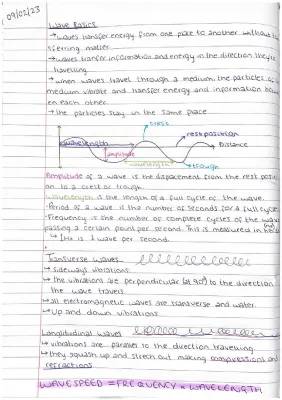 09/02/23
Wave Basics
→ waves transfer energy from one place to another without
ferring matter.
→ waves transfer information and energy in the direction they're
travelling
→ when waves travel through a medium, the particles of
medium vibrate and transfer energy and information
en each other.
→ the particles stay in the same place
crest
rest position
wavelength
Distance
amplitude
wavelength
trough
Amplitude of a wave is the displacement from the rest posit
on to a crest or trough.
Wavelength is the length of a full cycle of the wave.
Period of a wave is the number of seconds for a full cycle
Frequency is the number of complete cycles of the wave
passing a certain point per second. This is measured in
↳ 1Hz is 1 wave per second.
Transverse waves
↳ Sideways vibrations
↳ the vibrations are perpendicular (at 90°) to the direction
the wave travels
↳ all electromagnetic waves are transverse and water.
↳ Up and down vibrations
Longitudinal waves
↳ vibrations are parallel to the direction travelling
↳ they squash up and stretch out making compressions and
refractions
WAVE SPEED = FREQUENCY × WAVELENGTH